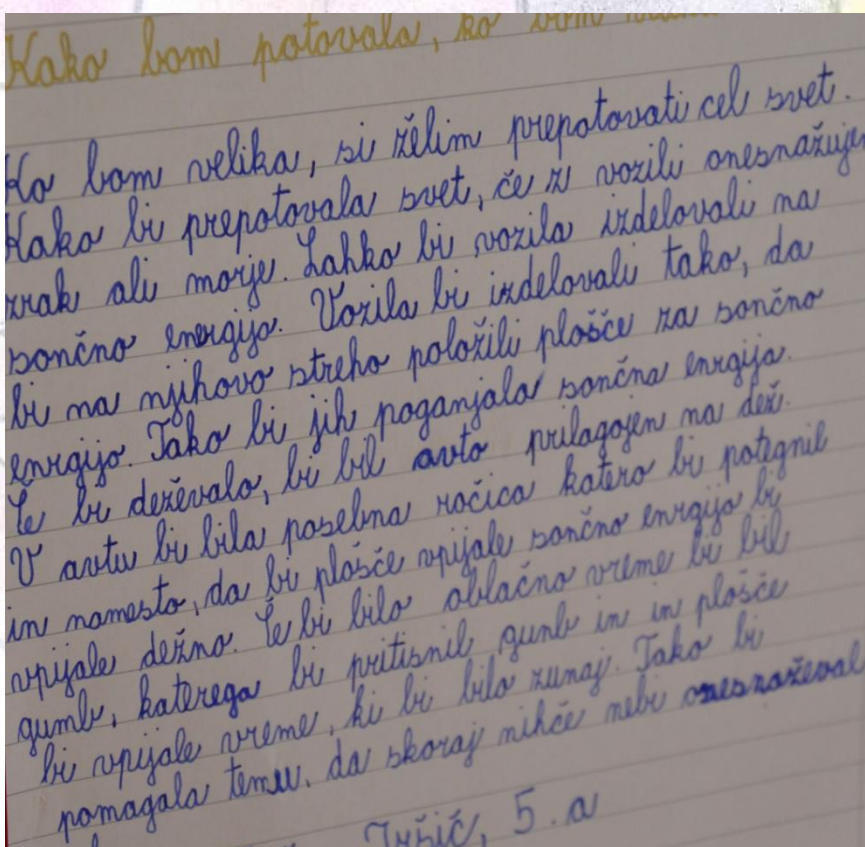 Kako bom potovala, ko bom
Ko bom velika, si želim prepotovati cel svet.
Kako bi prepotovala svet, če z vozili onesnažujem
zrak ali morje. Lahko bi vozila izdelovali na
sončno energijo. Vozila bi izdelovali tako, da
bi na njihovo streho položili plošče za sončno
enrgijo. Tako bi jih poganjala sončna enrgija.
Če bi deževalo, bi bil avto prilagojen na dež.
V avtu bi bila posebna ročica katero bi potegnil
in namesto, da bi plošče vpijale sončno enrgijo bi
vpijale dežno. Če bi bilo oblačno vreme bi bil
gumb, katerega bi pritisnil gumb in in plošče
bi vpijale vreme, ki bi bilo zunaj. Tako bi
pomagala temu, da skoraj nihče nebi onesnaževal
5. a